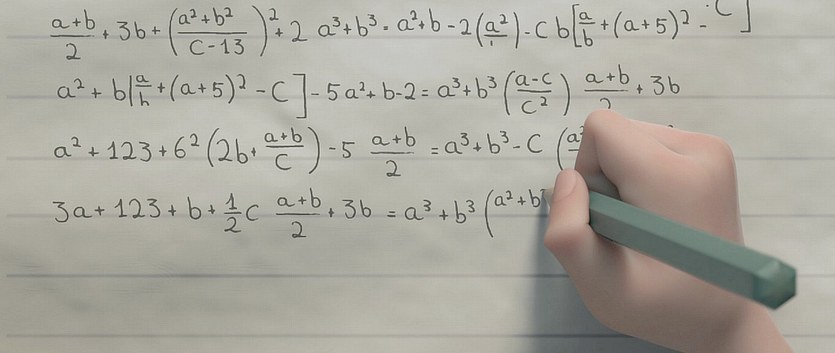 a+b/2 + 3b + (a²+b²/c-13)² + 2 a³+b³ = a²+b-2(a²/) - c b[a/b + (a+5)² - c]
a² + b[a/b + (a+5)² - c] - 5a²+b-2 = a³+b³(a-c/c²) a+b/2 + 3b
a² + 123 + 6²(2b + a+b/c) - 5 a+b/2 = a³+b³ - c (a²
3a + 123 + b + 1/2c a+b/2 + 3b = a³+b³(a²+b